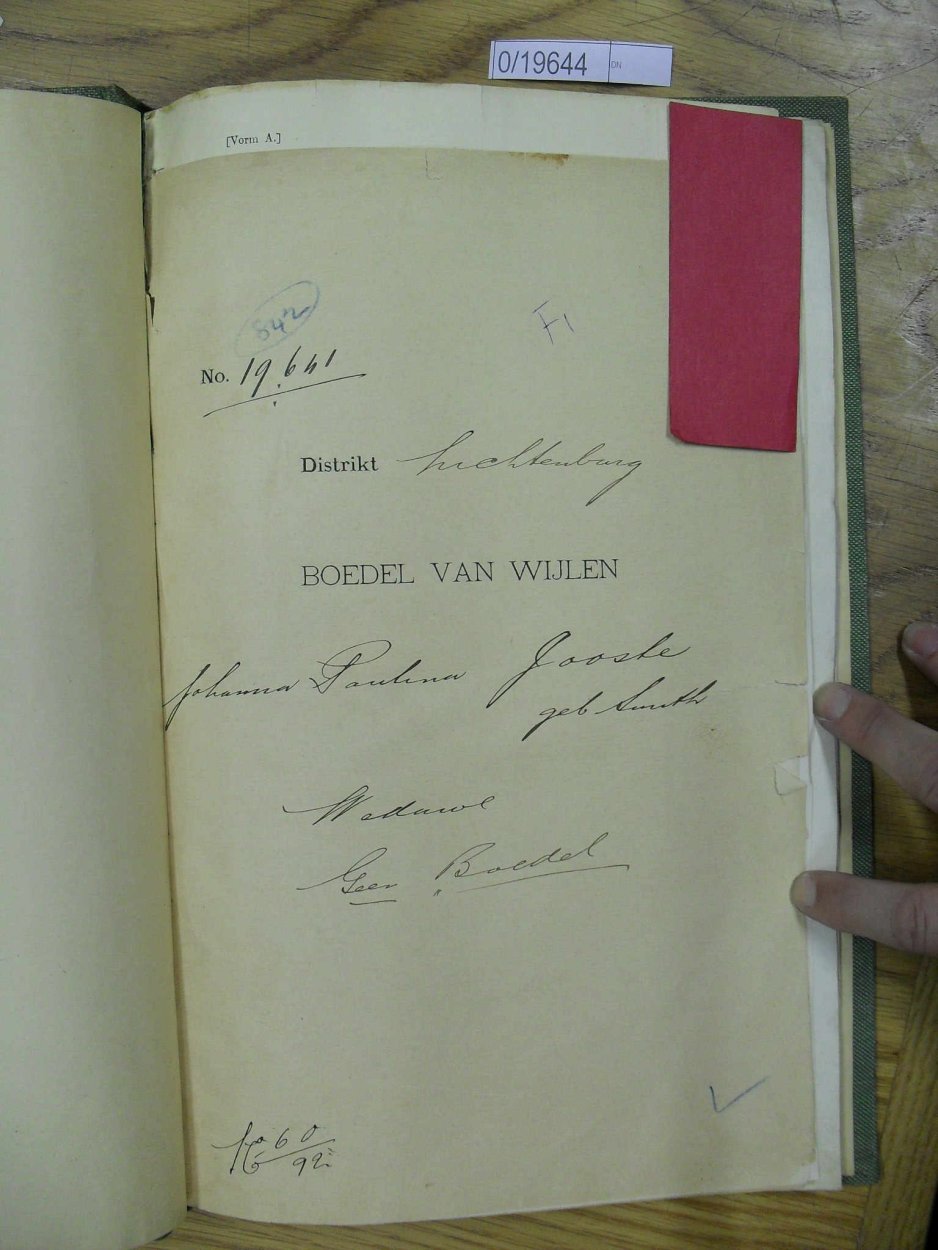 0/19644 DN
[Vorm A.]
842
F1
No. 19.641
Distrikt Lichtenburg
BOEDEL VAN WIJLEN
Johanna Paulina Jooste
geb Smith
Weduwe
Geen Boedel
No 60/92